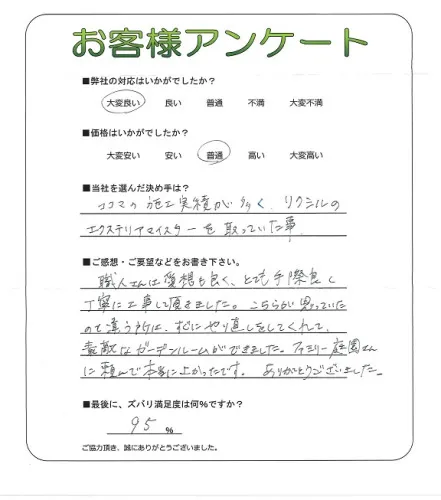 お客様アンケート
■弊社の対応はいかがでしたか?
大変良い 良い 普通 不満 大変不満
■価格はいかがでしたか?
大変安い 安い 普通 高い 大変高い
■当社を選んだ決め手は?
ココマの施工実績が多く、リクシルの
エクステリアマイスターを取っていた事
■ご感想・ご要望などをお書き下さい。
職人さんは愛想も良く、とても手際良く
丁寧に工事して頂きました。こちらが思っていた
のと違う所は、すぐにやり直しをしてくれて、
素敵なガーデンルームができました。ファミリー庭園さん
に頼んで本当に よかったです。ありがとうございました。
■最後に、ズバリ満足度は何%ですか?
95 %
ご協力頂き、誠にありがとうございました。